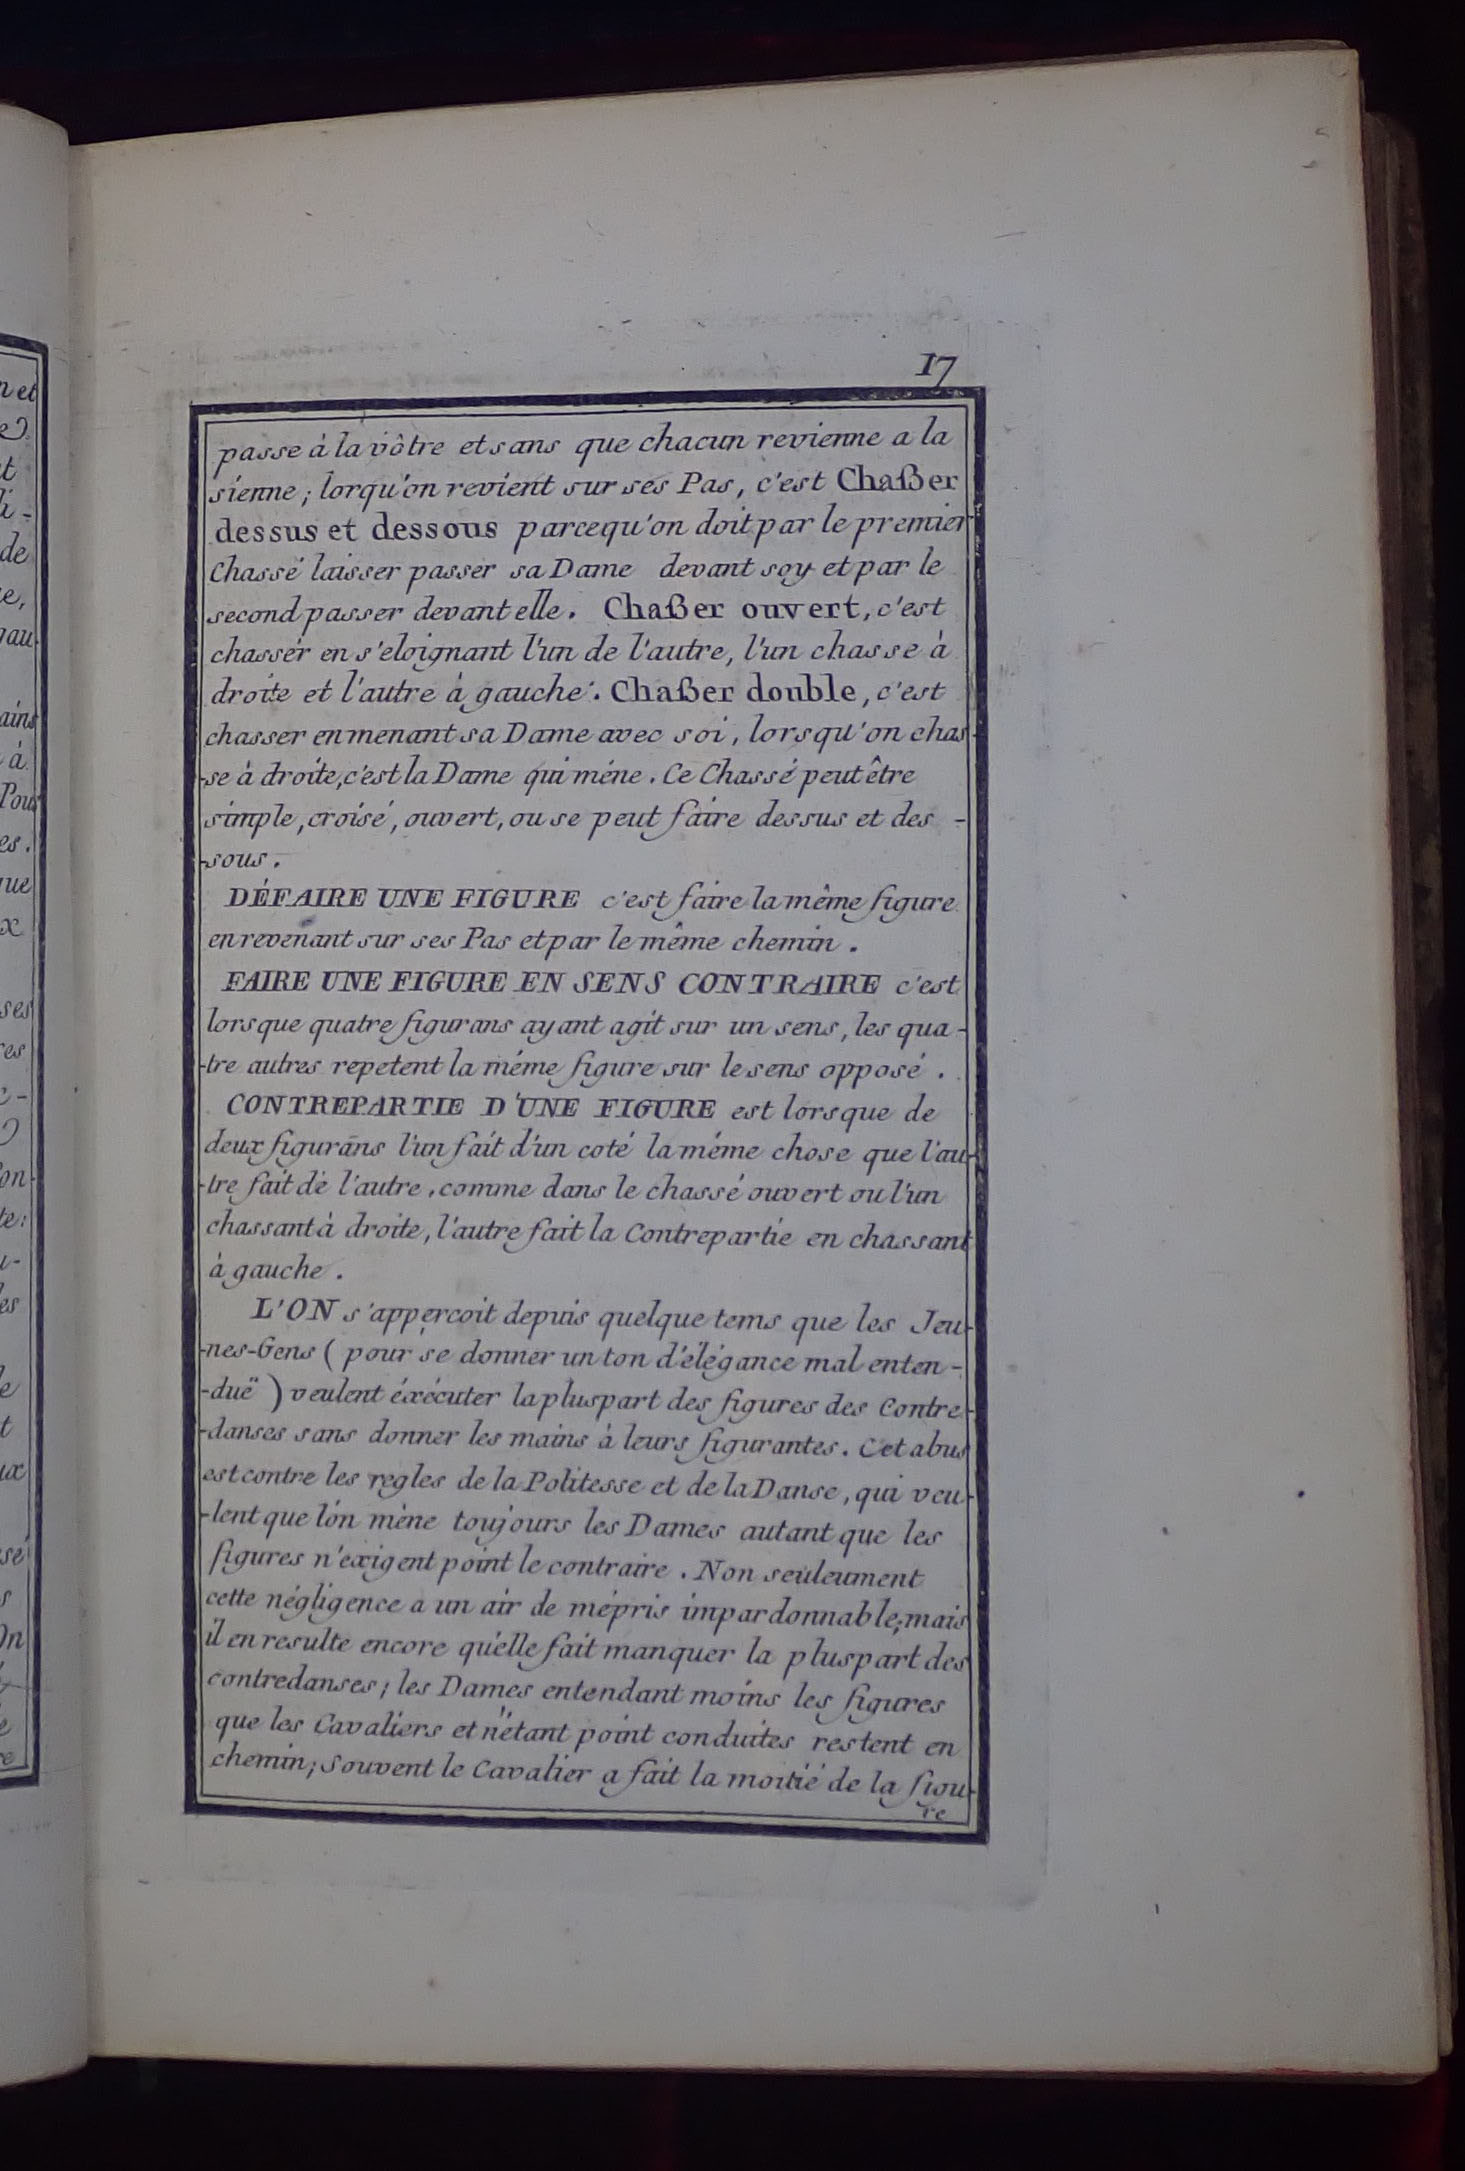 17
passe à la vôtre et sans que chacun revienne a la
sienne; lorqu'on revient sur ses Pas, c'est Chaßer
dessus et dessous parcequ'on doit par le premier
Chassé laisser passer sa Dame devant soy et par le
second passer devant elle. Chaßer ouvert, c'est
chassér en s'eloignant l'un de l'autre, l'un chasse à
droite et l'autre à gauche. Chaßer double, c'est
chasser en menant sa Dame avec soi, lorsqu'on chas-
-se à droite, c'est la Dame qui méne. Ce Chassé peut être
simple, croisé, ouvert, ou se peut faire dessus et des-
-sous.
DÉFAIRE UNE FIGURE c'est faire la même figure
en revenant sur ses Pas et par le même chemin.
FAIRE UNE FIGURE EN SENS CONTRAIRE c'est
lorsque quatre figurans ayant agit sur un sens, les qua-
-tre autres repetent la méme figure sur le sens opposé.
CONTREPARTIE D'UNE FIGURE est lorsque de
deux figurans l'un fait d'un coté la méme chose que l'au-
-tre fait de l'autre, comme dans le chassé ouvert ou l'un
chassant à droite, l'autre fait la Contrepartie en chassant
à gauche.
L'ON s'apperçoit depuis quelque tems que les Jeu-
-nes-Gens (pour se donner un ton d'élégance mal enten-
-duë) veulent éxécuter la pluspart des figures des Contre-
-danses sans donner les mains à leurs figurantes. Cet abus
est contre les regles de la Politesse et de la Danse, qui veu-
-lent que l'on mène toujours les Dames autant que les
figures n'exigent point le contraire. Non seuleument
cette négligence a un air de mépris impardonnable; mais
il en resulte encore qu'elle fait manquer la pluspart des
contredanses; les Dames entendant moins les figures
que les Cavaliers et n'étant point conduites restent en
chemin; Souvent le Cavalier a fait la moitié de la figu-
re
n et
t
li-
de
e,
gau-
ains
à
Pour
es.
que
x
ses
res
on-
te:
u-
les
le
t
ux
sé
s
On
re